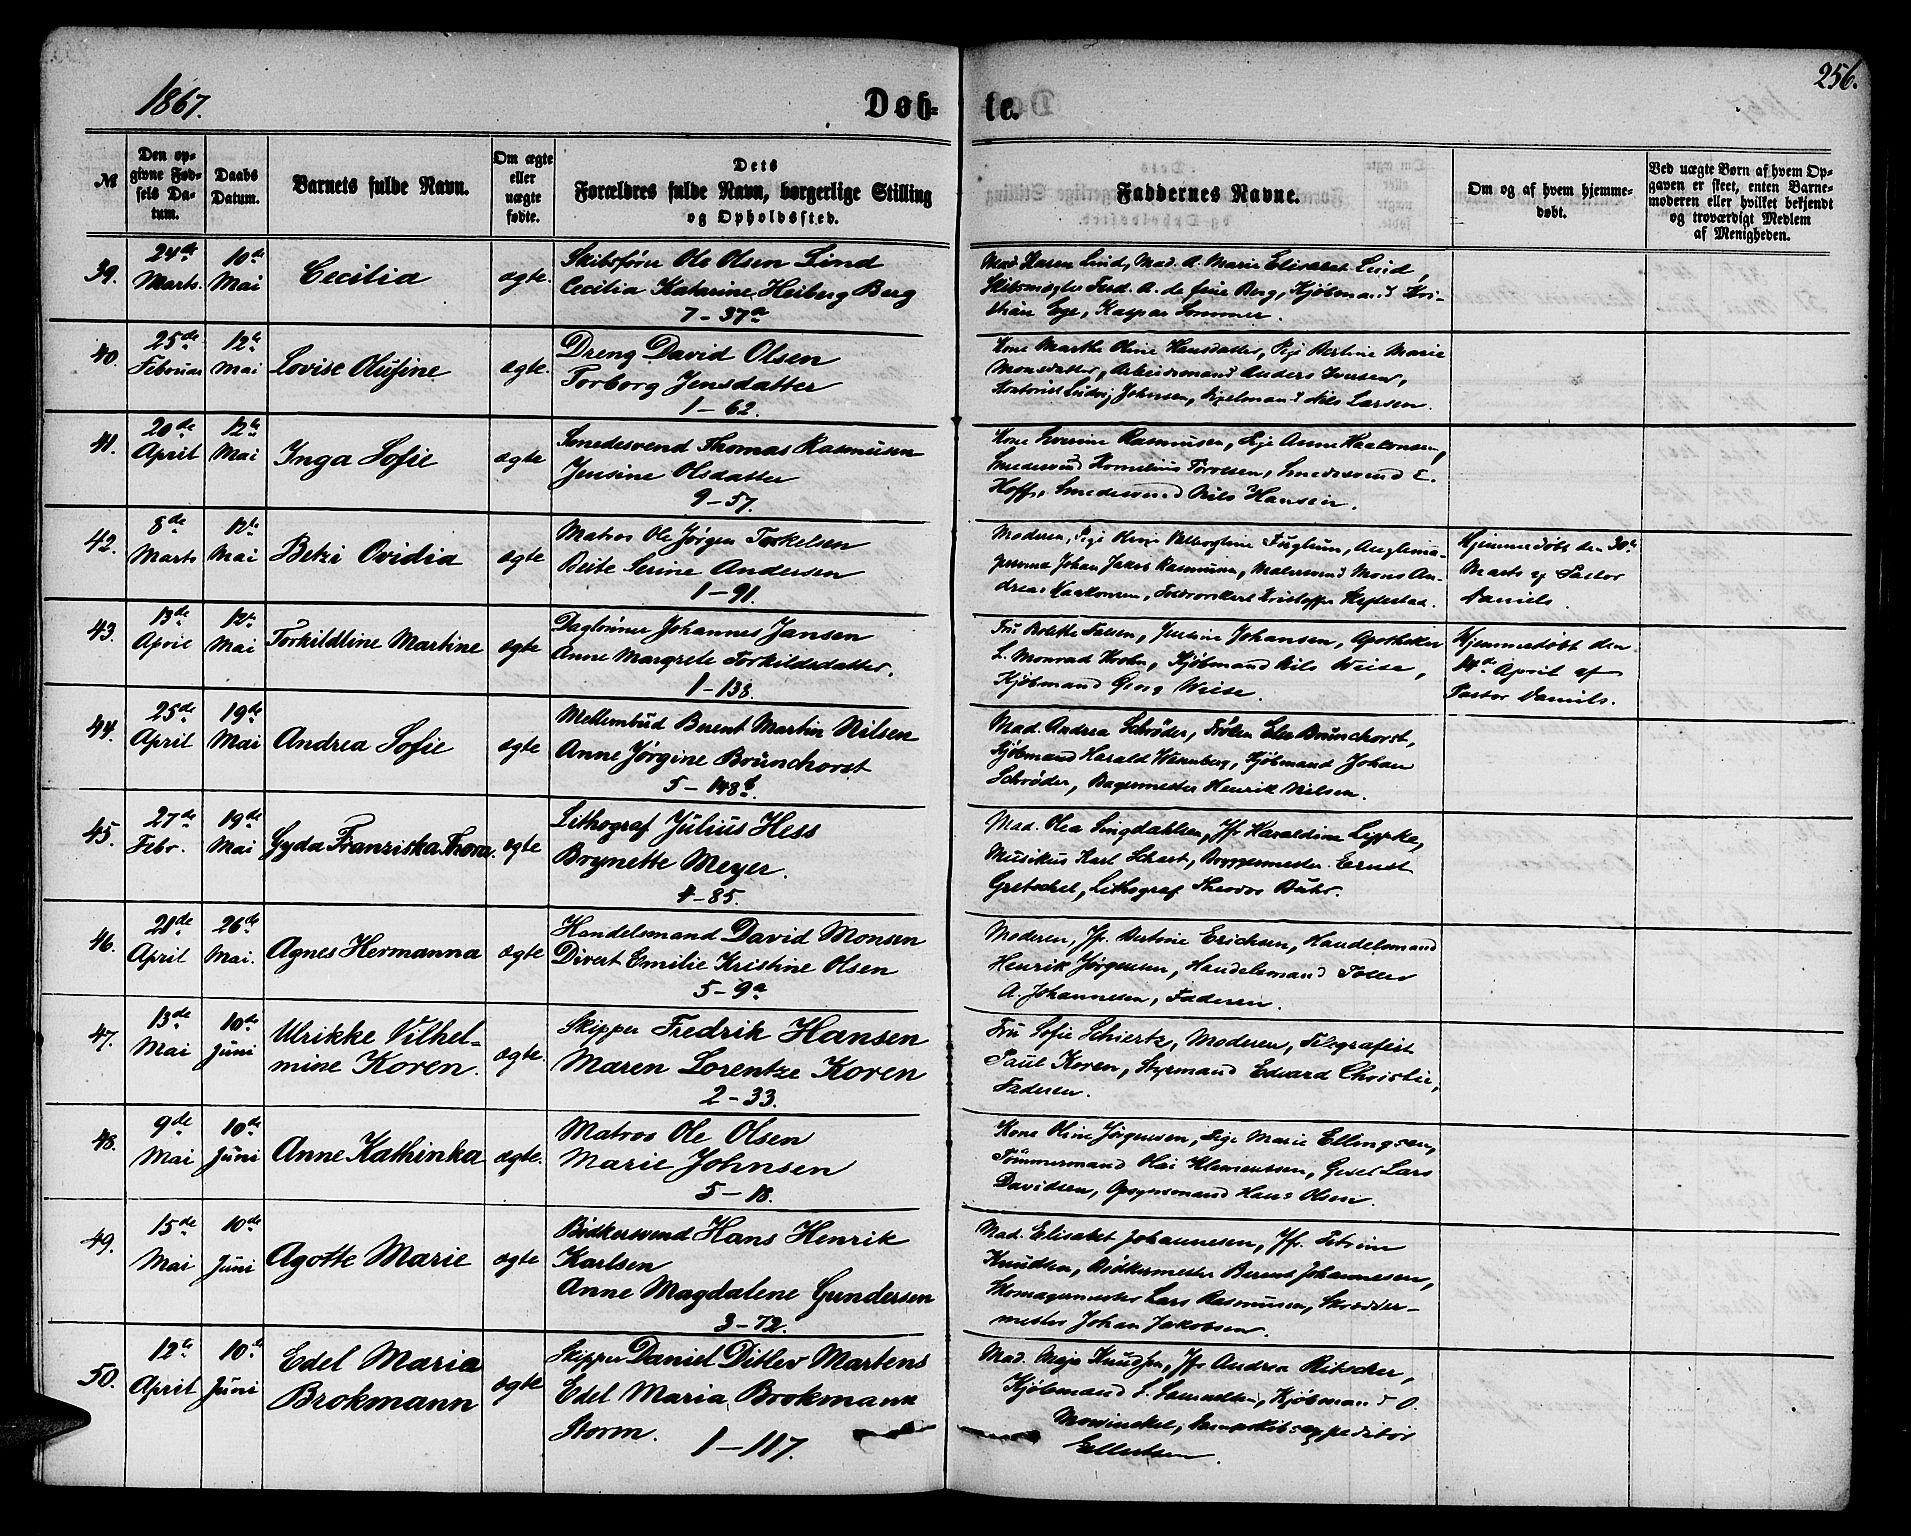 256.
1867.
Døb-
te.
№
Den op-
givne Fød-
sels Da-
tum.
Daabs
Datum.
Barnets fulde Navn.
Om ægte
eller
uægte
fødte.
Dets
Forældres fulde Navn, borgerlige Stilling
og Opholdssted.
Faddernes Navne.
Om og af hvem hjemme-
døbt.
Ved uægte Børn af hvem Op-
gaven er skeet, enten Barne-
moderen eller hvilket bekjendt
og troværdigt Medlem
af Menigheden.
39.
24de
Marts.
10de
Mai
Cecilia
ægte.
Skibsfører Ole Olsen Lind
Cecilia Katarine Heiberg Berg
7-37a
Mad. Karen Lind, Mad. A. Marie Elisabet Lind,
Skibsmægler Ferd. A. de fine Berg, Kjøbmand Kri-
stian Ege, Kaspar Sommer.
40.
25de
Februar
12te
Mai
Lovise Olufine
ægte.
Dreng David Olsen
Torborg Jensdatter
1-62.
Kone Marthe Oline Hansdatter, Pige Bertine Marie
Monsdatter, Arbeidsmand Anders Iversen,
Kontorist Ludvig Johnsen, Nils Larsen.
41.
20de
April
12te
Mai
Inga Sofie
ægte
Smedesvend Thomas Rasmusen
Jensine Olsdatter
9-57.
Kone Severine Rasmusen, Pige Anne Haakonsen,
Smedesvend Kornelius Torolsen, Smedesvend E.
Hoff, Smedesvend Nils Hansen.
42.
8de
Marts
12te
Mai
Betzi Ovidia
ægte
Matros Ole Jørgen Torkelsen
Beite Serine Andersen
1-91.
Moderen, Pige
Johan Jakob Rasmusen, Malersvend Mons An-
dreas Haakonsen, Kristoffer
Hjemmedøbt den 30te
Marts af Pastor
Daniels.
43.
13de
April
12te
Mai
Torkildine Martine
ægte
Daglønner Johannes Jansen
Anne Margrete Torkildsdatter.
1-138.
Fru Bolette Falsen, Justine Johansen, Apotheker
L. Monrad Krohn, Kjøbmand Nils Weise,
Kjøbmand Georg Weise.
Hjemmedøbt den
14de April af
Pastor Daniels.
44.
25de
April
19de
Mai
Andrea Sofie
ægte
Mellembud Berent Martin Nilsen
Anne Jørgine Brünchorst
5-148b.
Mad. Andrea Schrøder, Frøken Elen Brünchorst,
Kjøbmand Harald Wesenberg, Kjøbmand Johan
Schrøder, Bagermester Henrik Nilsen.
45.
27de
Febr.
19de
Mai
Gyda Franziska Thora.
ægte
Lithograf Julius Hess
Brynette Meyer.
4-85.
Mad. Olea Singdahlsen, Jfr Haraldine Lipke,
Musikus Karl Schart, Bryggermester Ernst
Gretschel, Lithograf Theodor Buhr.
46.
21de
April
26de
Mai.
Agnes Hermanna
ægte
Handelsmand David Monsen
Divert Emilie Kristine Olsen
5-9a
Moderen, Jfr. Bertine Erichsen, Handelsmand
Henrik Jørgensen, Handelsmand Toller
A. Johannesen, Faderen.
47.
13de
Mai
10de
Juni
Ulrikke Vilhel-
mine Koren.
ægte.
Skipper Fredrik Hansen
Maren Lorentze Koren
2-33.
Fru Sofie Schiertz, Moderen, Telegrafist
Paul Koren, Styrmand Edvard Christie,
Faderen.
48.
9de
Mai
10de
Juni
Anne Kathinka
ægte.
Matros Ole Olsen
Marie Johnsen
5-18.
Kone Oline Jørgensen, Pige Marie Ellingsen,
Tømmermand Olai Klemensen, Gesel Lars
Davidsen, Opsynsmand Hans Olsen.
49.
15de
Mai
10de
Juni
Agotte Marie
ægte
Bødkersvend Hans Henrik
Karlsen
Anne Magdalene Gundersen
3-72.
Mad. Elisabet Johannesen, Jfr. Petrine
Knudsen, Bødkermester Berent Johannesen,
Skomagermester Lars Rasmusen, Skrædder-
mester Johan Jakobsen.
50.
12te
April
10de
Juni
Edel Maria
Brokmann
ægte
Skipper Daniel Ditlev Martens
Edel Maria Brokmann
Storm.
1-117.
Mad. Maja Knudsen, Jfr Andrea Ritscher,
Kjøbmand S. Samuelsen, Kjøbmand O.
Mowinckel, Dampskibsexpeditør
Ellertsen.